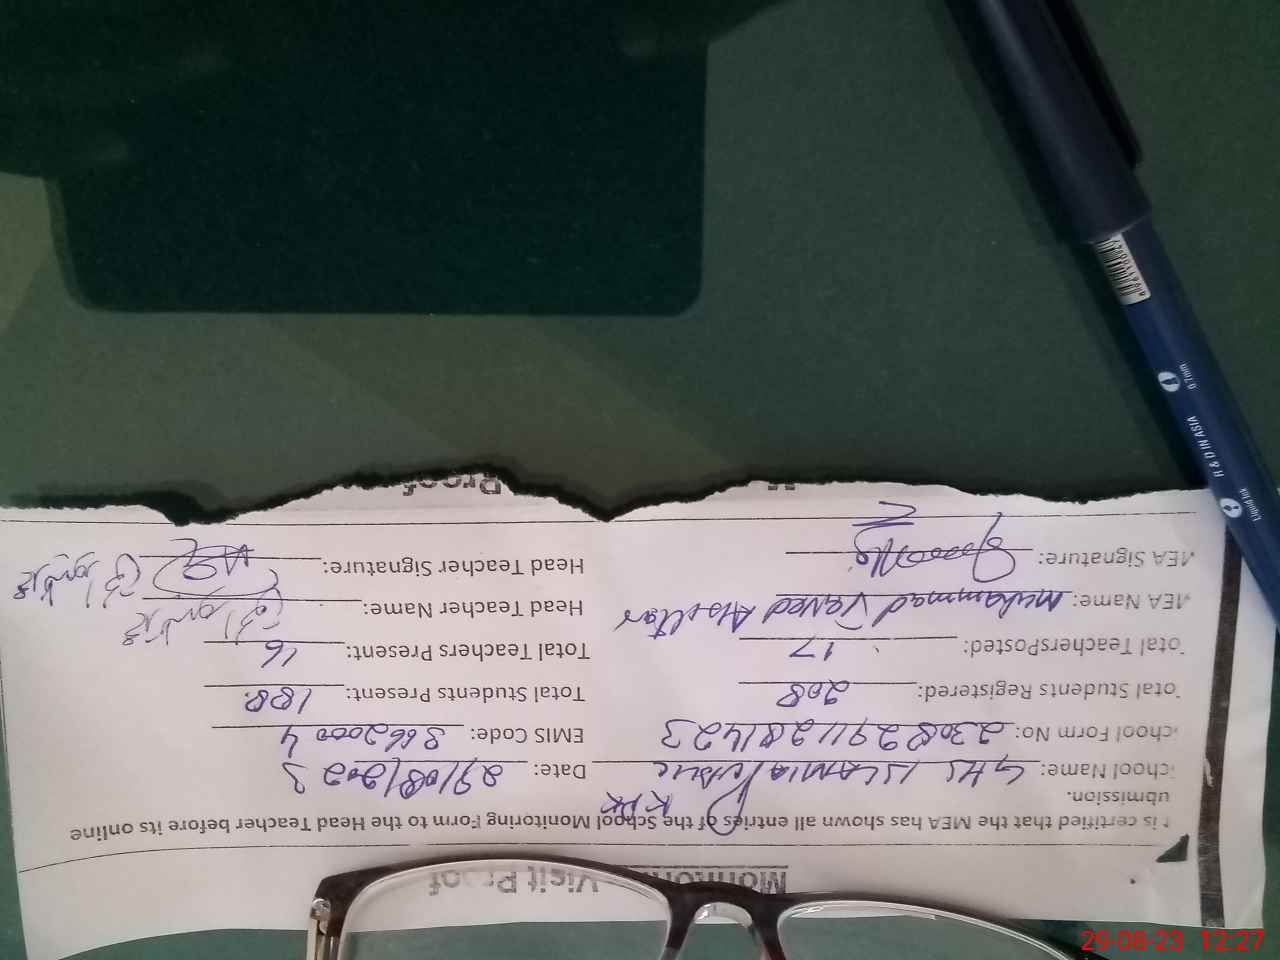 Visit Proof
t is certified that the MEA has shown all entries of the School Monitoring Form to the Head Teacher before its online
ubmission.
chool Name: GHS ISLAMIA Public KPK Date: 29/08/2023
chool Form No: 23082911281423 EMIS Code: 36620004
otal Students Registered: 208 Total Students Present: 188
otal TeachersPosted: 17 Total Teachers Present: 16
MEA Name: Muhammad Javed Head Teacher Name:
MEA Signature: Head Teacher Signature:
Proof
Liquid Ink
R & D IN ASIA
0.7mm
29-08-23 12:27